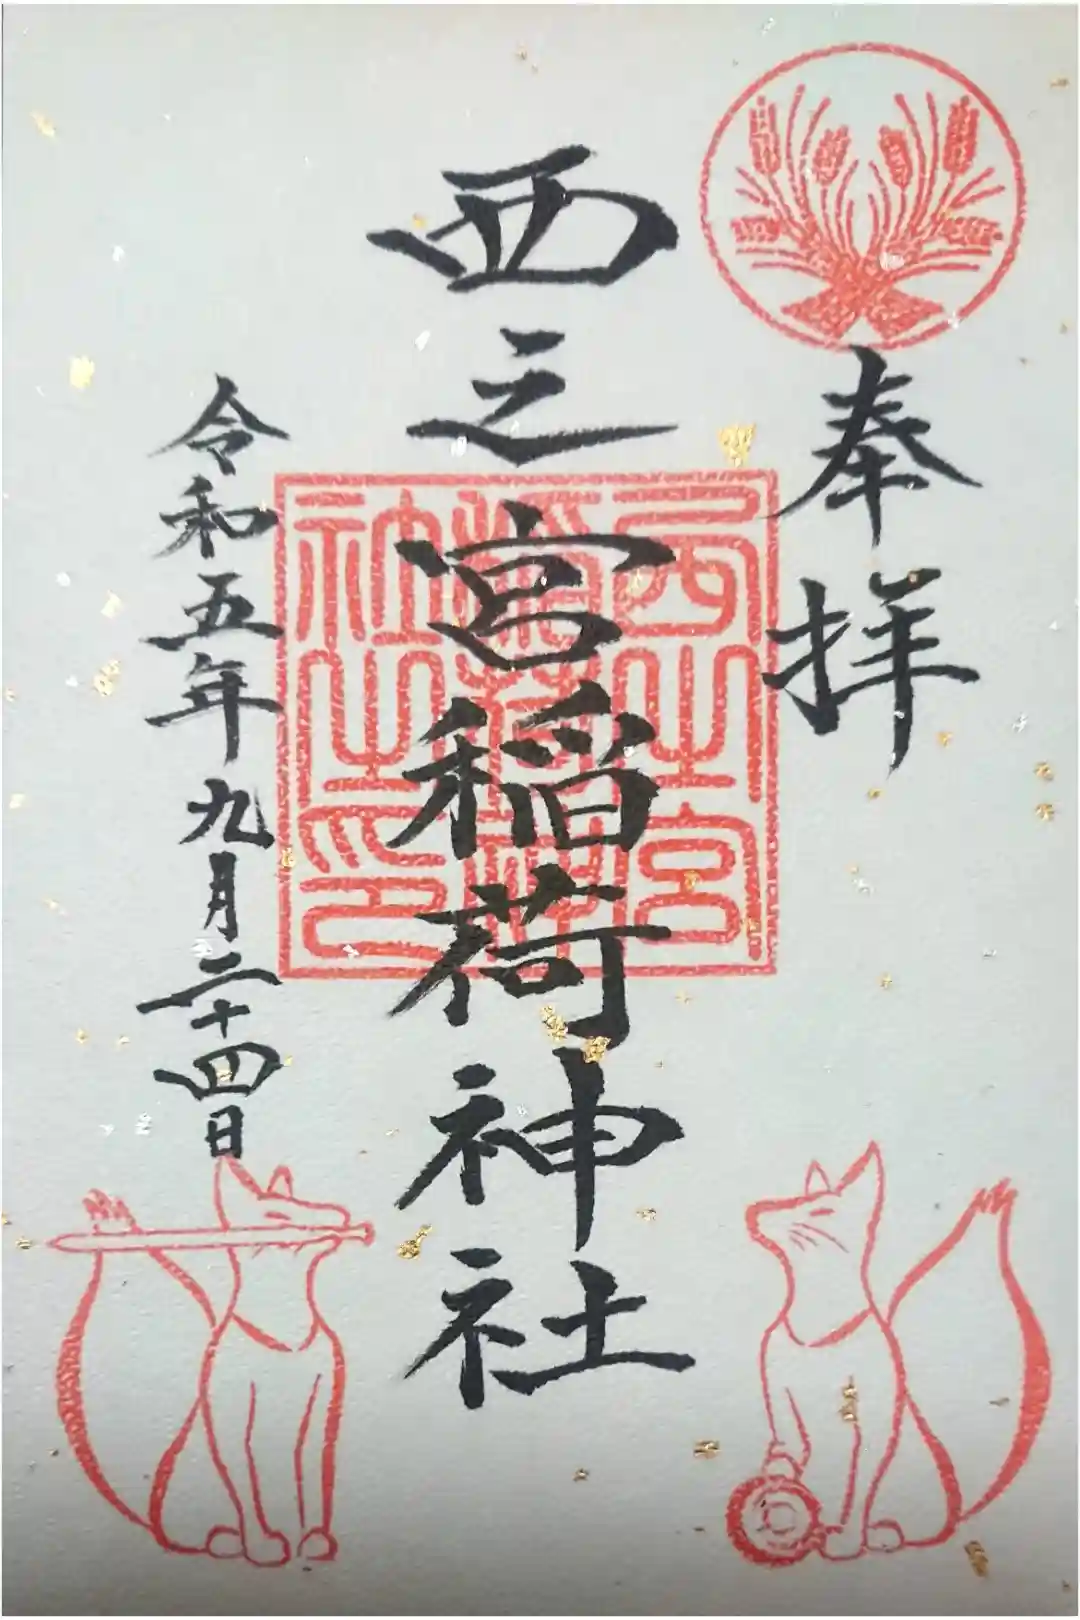 奉拝
西之宮稲荷神社
西之宮
稲荷神
社之印
令和五年九月二十四日